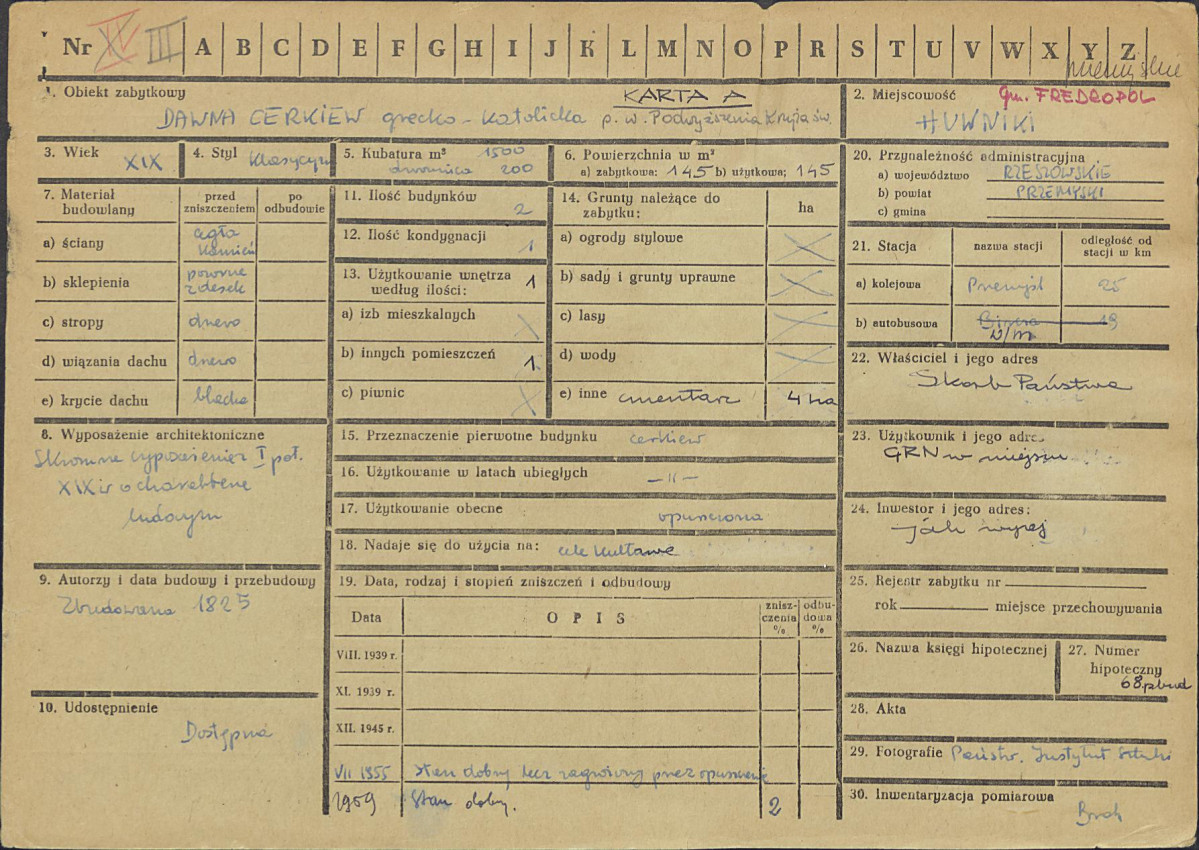 Nr XV III A B C D E F G H I J K L M N O P R S T U V W X Y Z
1. Obiekt zabytkowy KARTA A
DAWNA CERKIEW grecko-katolicka p.w. Podwyższenia Krzyża św.
2. Miejscowość Gm. FREDROPOL
HUWNIKI
3. Wiek XIX
4. Styl klasycyzm
5. Kubatura m³ 1500
dzwonnica 200
6. Powierzchnia w m²
a) zabytkowa: 145 b) użytkowa: 145
7. Materiał budowlany
przed zniszczeniem
po odbudowie
a) ściany cegła kamień
b) sklepienia pozorne z desek
c) stropy drewno
d) wiązania dachu drewno
e) krycie dachu blacha
8. Wyposażenie architektoniczne
Skromne wyposażenie z I poł.
XIX w o charakterze
ludowym
9. Autorzy i data budowy i przebudowy
Zbudowana 1825
10. Udostępnienie
Dostępna
11. Ilość budynków 2
12. Ilość kondygnacji 1
13. Użytkowanie wnętrza według ilości: 1
a) izb mieszkalnych
b) innych pomieszczeń 1
c) piwnic
14. Grunty należące do zabytku: ha
a) ogrody stylowe
b) sady i grunty uprawne
c) lasy
d) wody
e) inne cmentarz 4 ha
15. Przeznaczenie pierwotne budynku cerkiew
16. Użytkowanie w latach ubiegłych — „ —
17. Użytkowanie obecne opuszczona
18. Nadaje się do użycia na: cele kultowe
19. Data, rodzaj i stopień zniszczeń i odbudowy
Data OPIS zniszczenia % odbudowa %
VIII. 1939 r.
XI. 1939 r.
XII. 1945 r.
VII 1955 Stan dobry lecz zagrożony przez opuszczenie
1959 Stan dobry. 2
20. Przynależność administracyjna
a) województwo RZESZOWSKIE
b) powiat PRZEMYSKI
c) gmina
21. Stacja nazwa stacji odległość od stacji w km
a) kolejowa Przemyśl 25
b) autobusowa Bircza 19
w/m
22. Właściciel i jego adres
Skarb Państwa
23. Użytkownik i jego adres
GRN w miejscu
24. Inwestor i jego adres:
jak wyżej
25. Rejestr zabytku nr
rok miejsce przechowywania
26. Nazwa księgi hipotecznej
27. Numer hipoteczny
68 p bud
28. Akta
29. Fotografie Państw. Instytut Sztuki
30. Inwentaryzacja pomiarowa
Brak